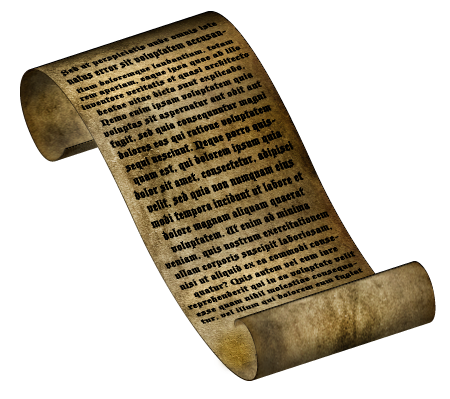 Sed ut perspiciatis unde omnis iste
natus error sit voluptatem accusan-
tium doloremque laudantium, totam
rem aperiam, eaque ipsa quae ab illo
inventore veritatis et quasi architecto
beatae vitae dicta sunt explicabo.
Nemo enim ipsam voluptatem quia
voluptas sit aspernatur aut odit aut
fugit, sed quia consequuntur magni
dolores eos qui ratione voluptatem
sequi nesciunt. Neque porro quis-
quam est, qui dolorem ipsum quia
dolor sit amet, consectetur, adipisci
velit, sed quia non numquam eius
modi tempora incidunt ut labore et
dolore magnam aliquam quaerat
voluptatem. Ut enim ad minima
veniam, quis nostrum exercitationem
ullam corporis suscipit laboriosam,
nisi ut aliquid ex ea commodi conse-
quatur? Quis autem vel eum iure
reprehenderit qui in ea voluptate velit
esse quam nihil molestiae consequa-
tur, vel illum qui dolorem eum fugiat